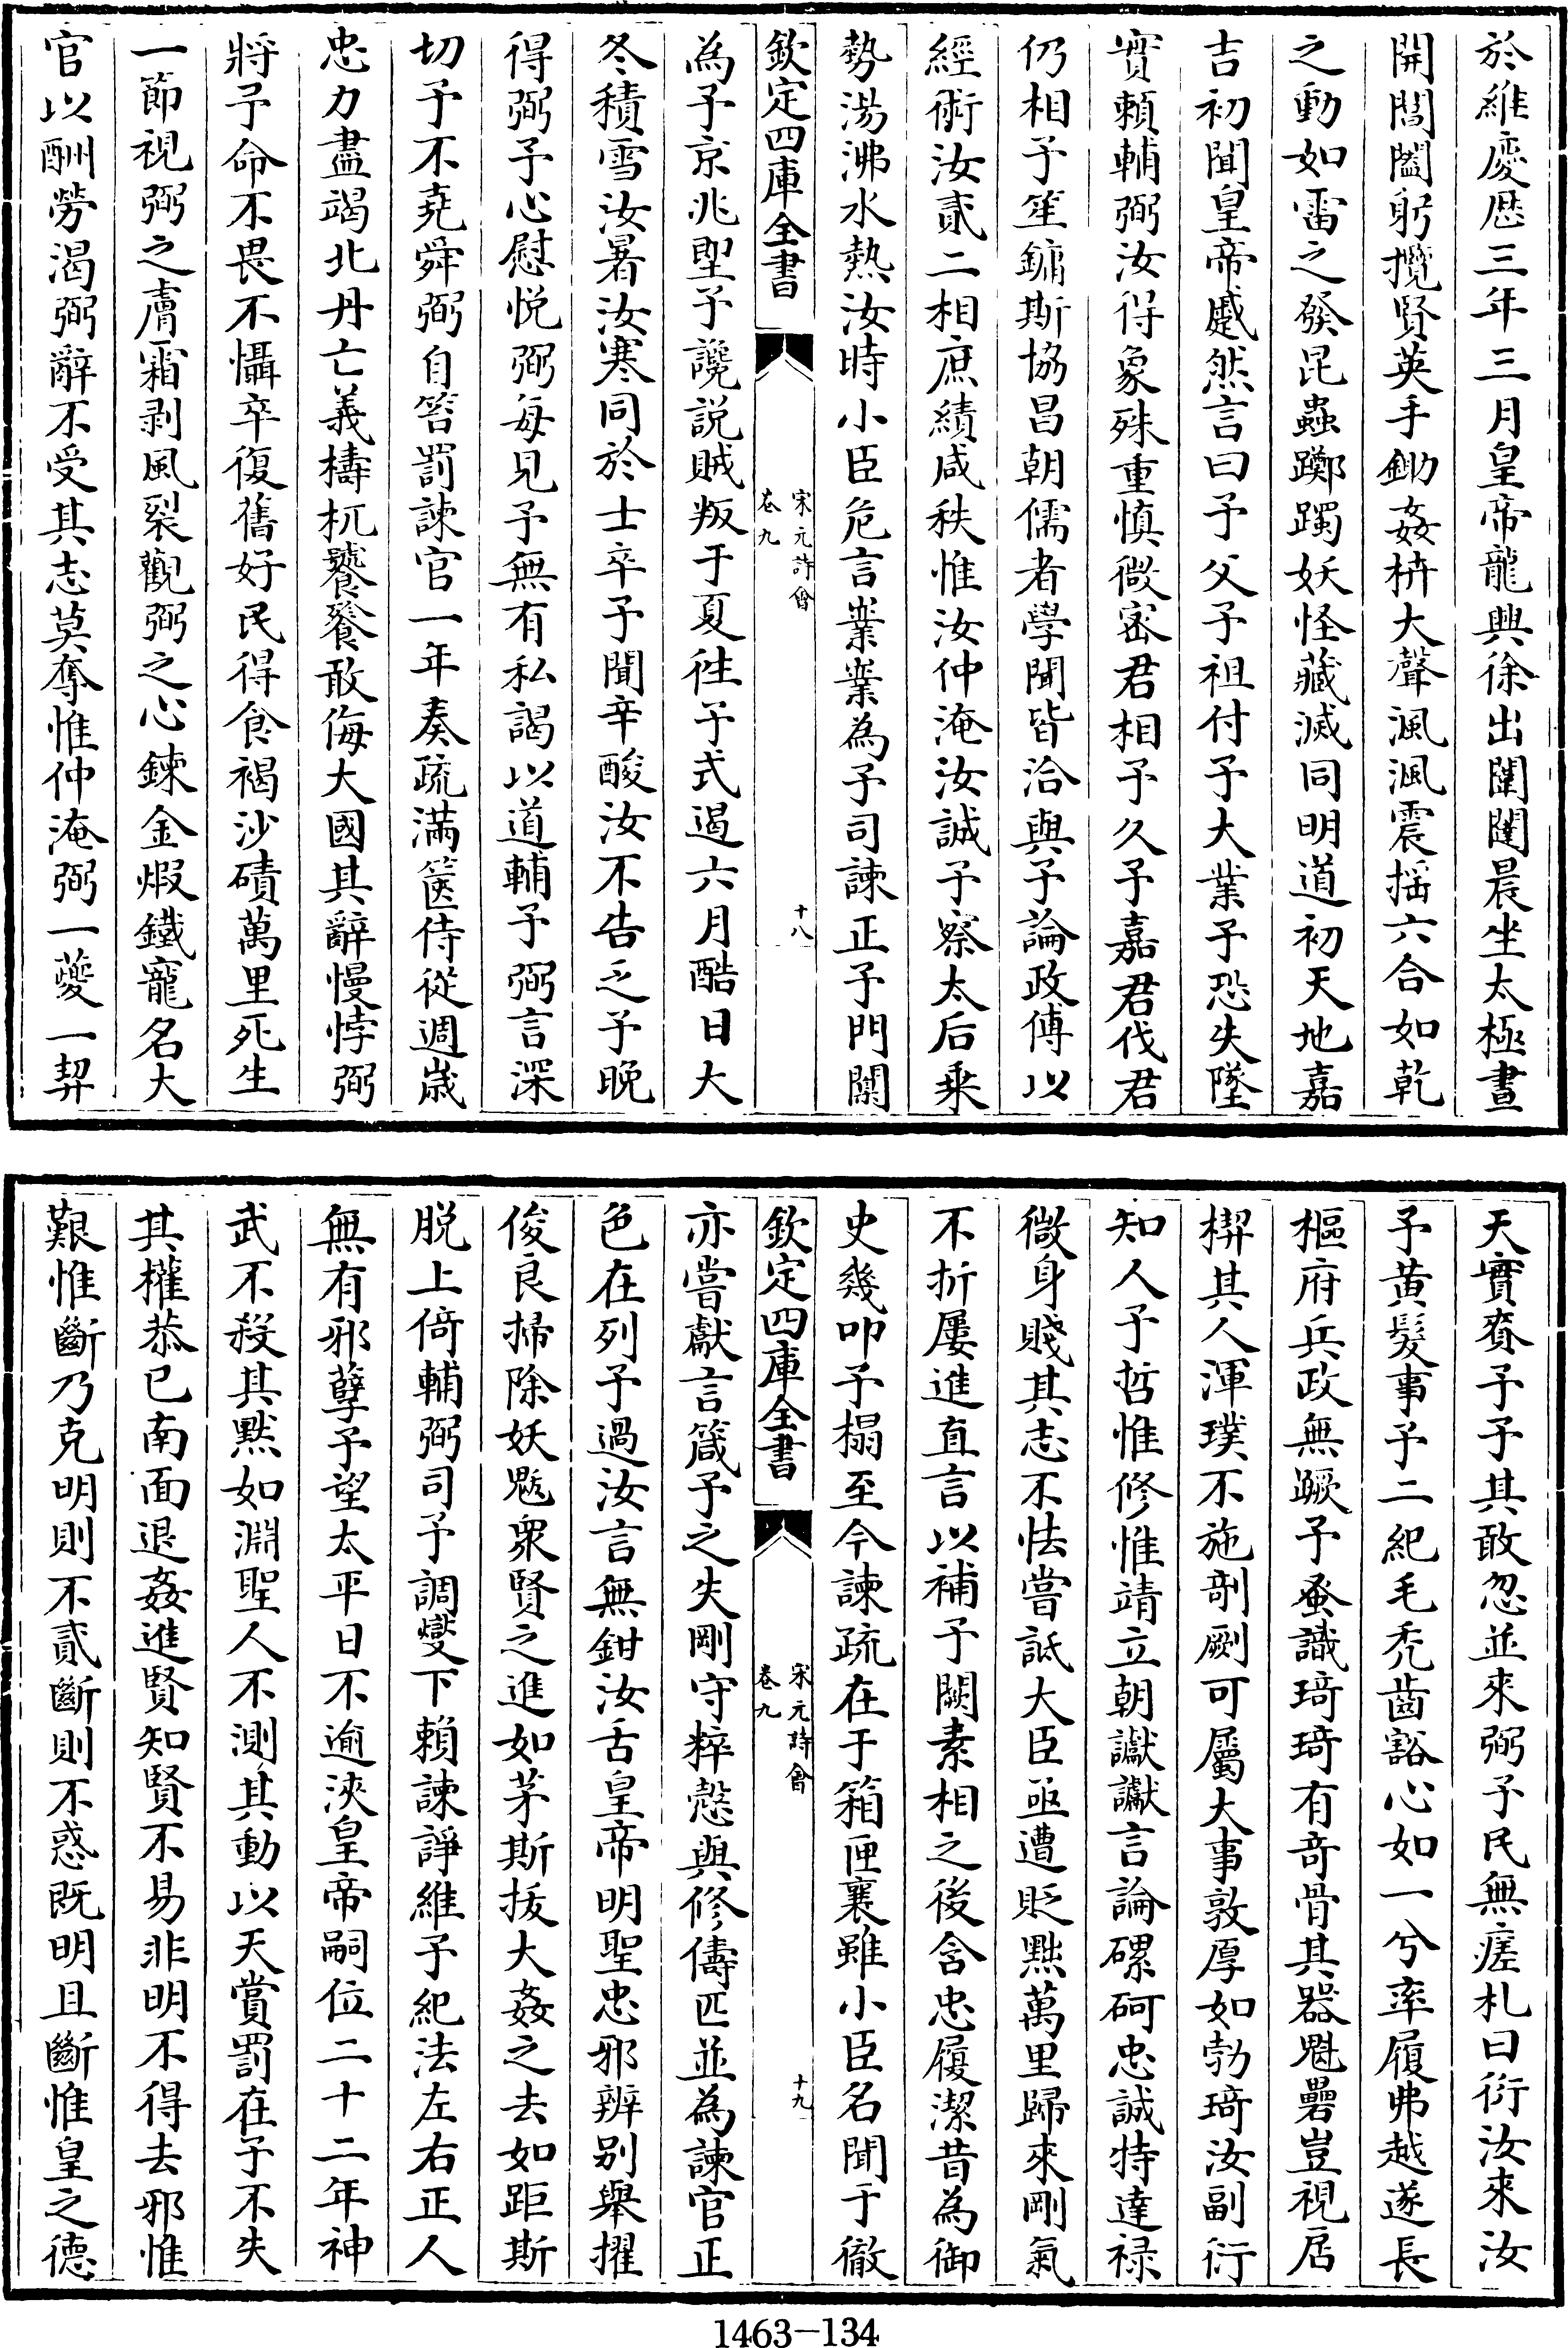 於維慶歴三年三月皇帝龍興徐出闈闥晨坐太極晝
開閶闔躬攬賢英手鋤姦枿大聲渢渢震揺六合如乾
之動如雷之發昆蟲躑躅妖怪藏滅同明道初天地嘉
吉初聞皇帝蹙然言曰予父予祖付予大業予恐失墜
實頼輔弼汝得象殊重慎微宻君相予久予嘉君伐君
仍相予笙鏞斯協昌朝儒者學聞皆洽與予論政傅以
經術汝貳二相庶績咸秩惟汝仲淹汝誠予察太后乗
勢湯沸水熱汝時小臣危言嶪嶪為予司諫正予門闑
欽定四庫全書
宋元詩會
卷九
十八
為予京兆聖予讒説賊叛于夏徃予式遏六月酷日大
冬積雪汝暑汝寒同於士卒予聞辛酸汝不告乏予晚
得弼予心慰悦弼每見予無有私謁以道輔予弼言深
切予不堯舜弼自笞罰諫官一年奏疏滿篋侍從週歳
忠力盡竭北丹亡義檮杌饕餮敢侮大國其辭慢悖弼
將予命不畏不懾卒復舊好民得食褐沙磧萬里死生
一節視弼之膚霜剥風裂觀弼之心鍊金煆鐵寵名大
官以酬勞渴弼辭不受其志莫奪惟仲淹弼一夔一契
天實賚予予其敢忽並來弼予民無瘥札曰衍汝來汝
予黄髮事予二紀毛秃齒豁心如一兮率履弗越遂長
樞府兵政無蹶予蚤識琦琦有竒骨其器魁礨豈視扂
楔其人渾璞不施剞劂可屬大事敦厚如勃琦汝副衍
知人予哲惟修惟靖立朝讞讞言論磥砢忠誠特達禄
微身賤其志不怯嘗詆大臣亟遭貶黜萬里歸來剛氣
不折屢進直言以補予闕素相之後含忠履潔昔為御
史幾叩予榻至今諫疏在于箱匣襄雖小臣名聞于徹
欽定四庫全書
宋元詩會
卷九
十九
亦嘗獻言箴予之失剛守粹慤與修儔匹並為諫官正
色在列予過汝言無鉗汝舌皇帝明聖忠邪辨别舉擢
俊良掃除妖魃衆賢之進如茅斯拔大姦之去如距斯
脱上倚輔弼司予調燮下頼諫諍維予紀法左右正人
無有邪孽予望太平日不逾浹皇帝嗣位二十二年神
武不殺其黙如淵聖人不測其動以天賞罰在予不失
其權恭已南面退姦進賢知賢不易非明不得去邪惟
艱惟斷乃克明則不貳斷則不惑既明且斷惟皇之德
1463-134